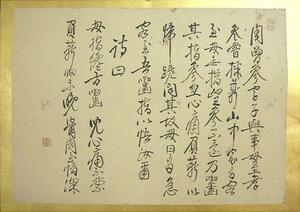 周曾參字子輿事母至孝
參嘗採薪山中家有客
至母無措望參不還乃嚙
其指參忽心痛負薪以
歸跪問其故母曰有急
客至吾嚙指以悟汝爾
詩曰
母指纔方嚙兒心痛不禁
負薪歸未晚骨肉至情深